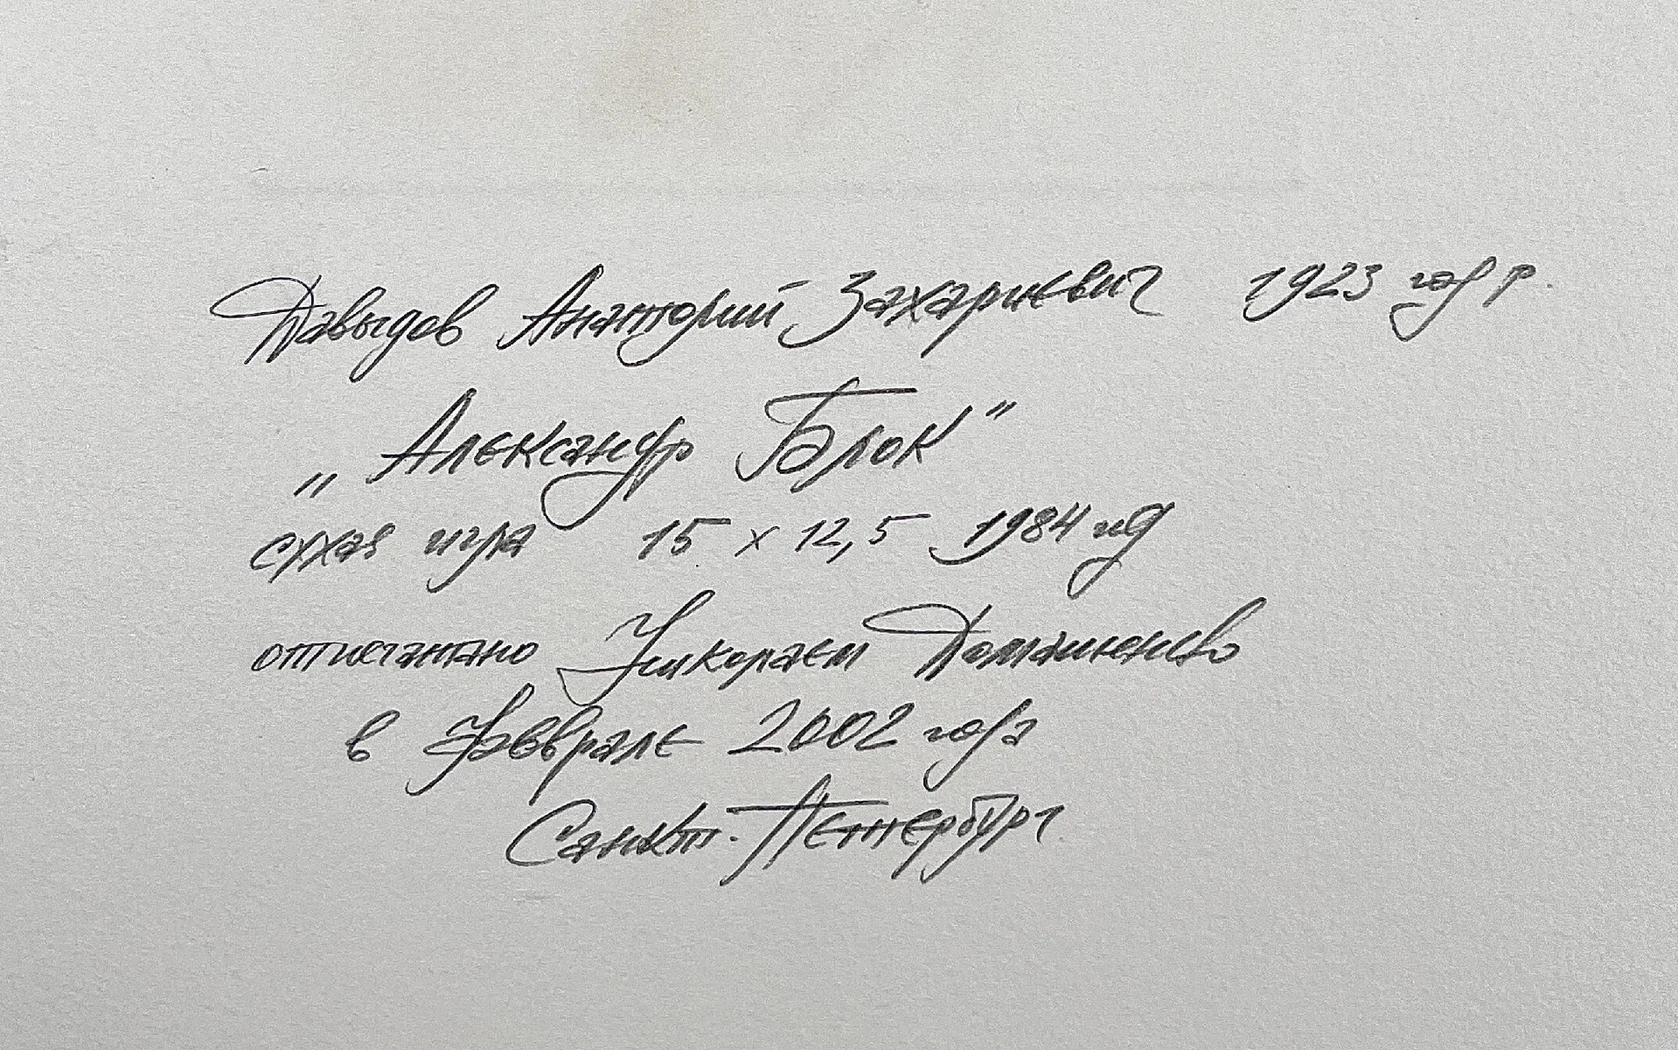 Давыдов Анатолий Захариевич 1923 год р.
„Александр Блок"
сухая игла 15 x 12,5 1984 год
отпечатано Николаем Домашенко
в Феврале 2002 года
Санкт-Петербург